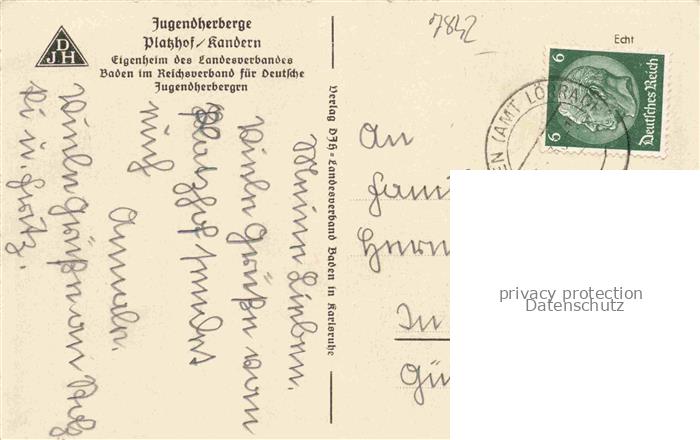 DJH
Jugendherberge
Platzhof/Kandern
Eigenheim des Landesverbandes
Baden im Reichsverband für Deutsche
Jugendherbergen
Verlag DJH-Landesverband Baden in Karlsruhe
7842
Echt
6
6
Deutsches Reich
(AMT LÖRRACH)
Meine Lieben.
Viele Grüße vom
Platzhof sendet
Euch
Viele Grüße
An
Fami
Herm
In
Gü
privacy protection
Datenschutz